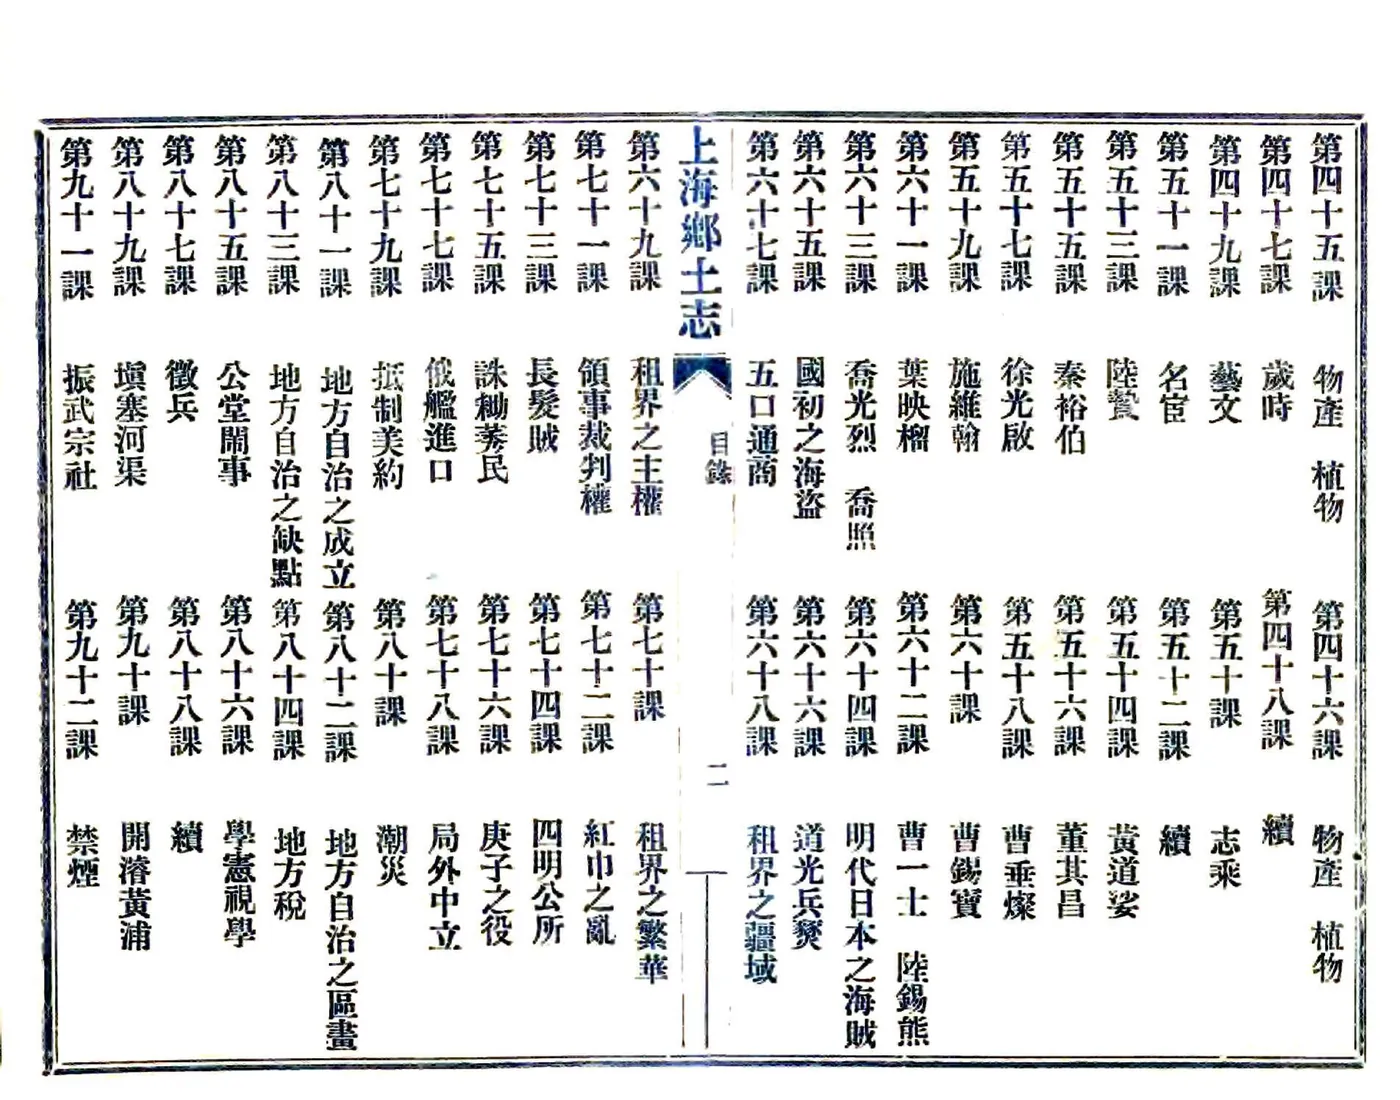 第四十五課　物產　植物　第四十六課　物產　植物
第四十七課　歲時　第四十八課　續
第四十九課　藝文　第五十課　志乘
第五十一課　名宦　第五十二課　續
第五十三課　陸贄　第五十四課　黃道娑
第五十五課　秦裕伯　第五十六課　董其昌
第五十七課　徐光啟　第五十八課　曹垂燦
第五十九課　施維翰　第六十課　曹錫寶
第六十一課　葉映榴　第六十二課　曹一士　陸錫熊
第六十三課　喬光烈　喬照　第六十四課　明代日本之海賊
第六十五課　國初之海盜　第六十六課　道光兵燹
第六十七課　五口通商　第六十八課　租界之疆域
上海鄉土志　目錄　二
第六十九課　租界之主權　第七十課　租界之繁華
第七十一課　領事裁判權　第七十二課　紅巾之亂
第七十三課　長髮賊　第七十四課　四明公所
第七十五課　誅鋤莠民　第七十六課　庚子之役
第七十七課　俄艦進口　第七十八課　局外中立
第七十九課　抵制美約　第八十課　潮災
第八十一課　地方自治之成立　第八十二課　地方自治之區畫
第八十三課　地方自治之缺點　第八十四課　地方稅
第八十五課　公堂鬧事　第八十六課　學憲視學
第八十七課　徵兵　第八十八課　續
第八十九課　塡塞河渠　第九十課　開濬黃浦
第九十一課　振武宗社　第九十二課　禁煙